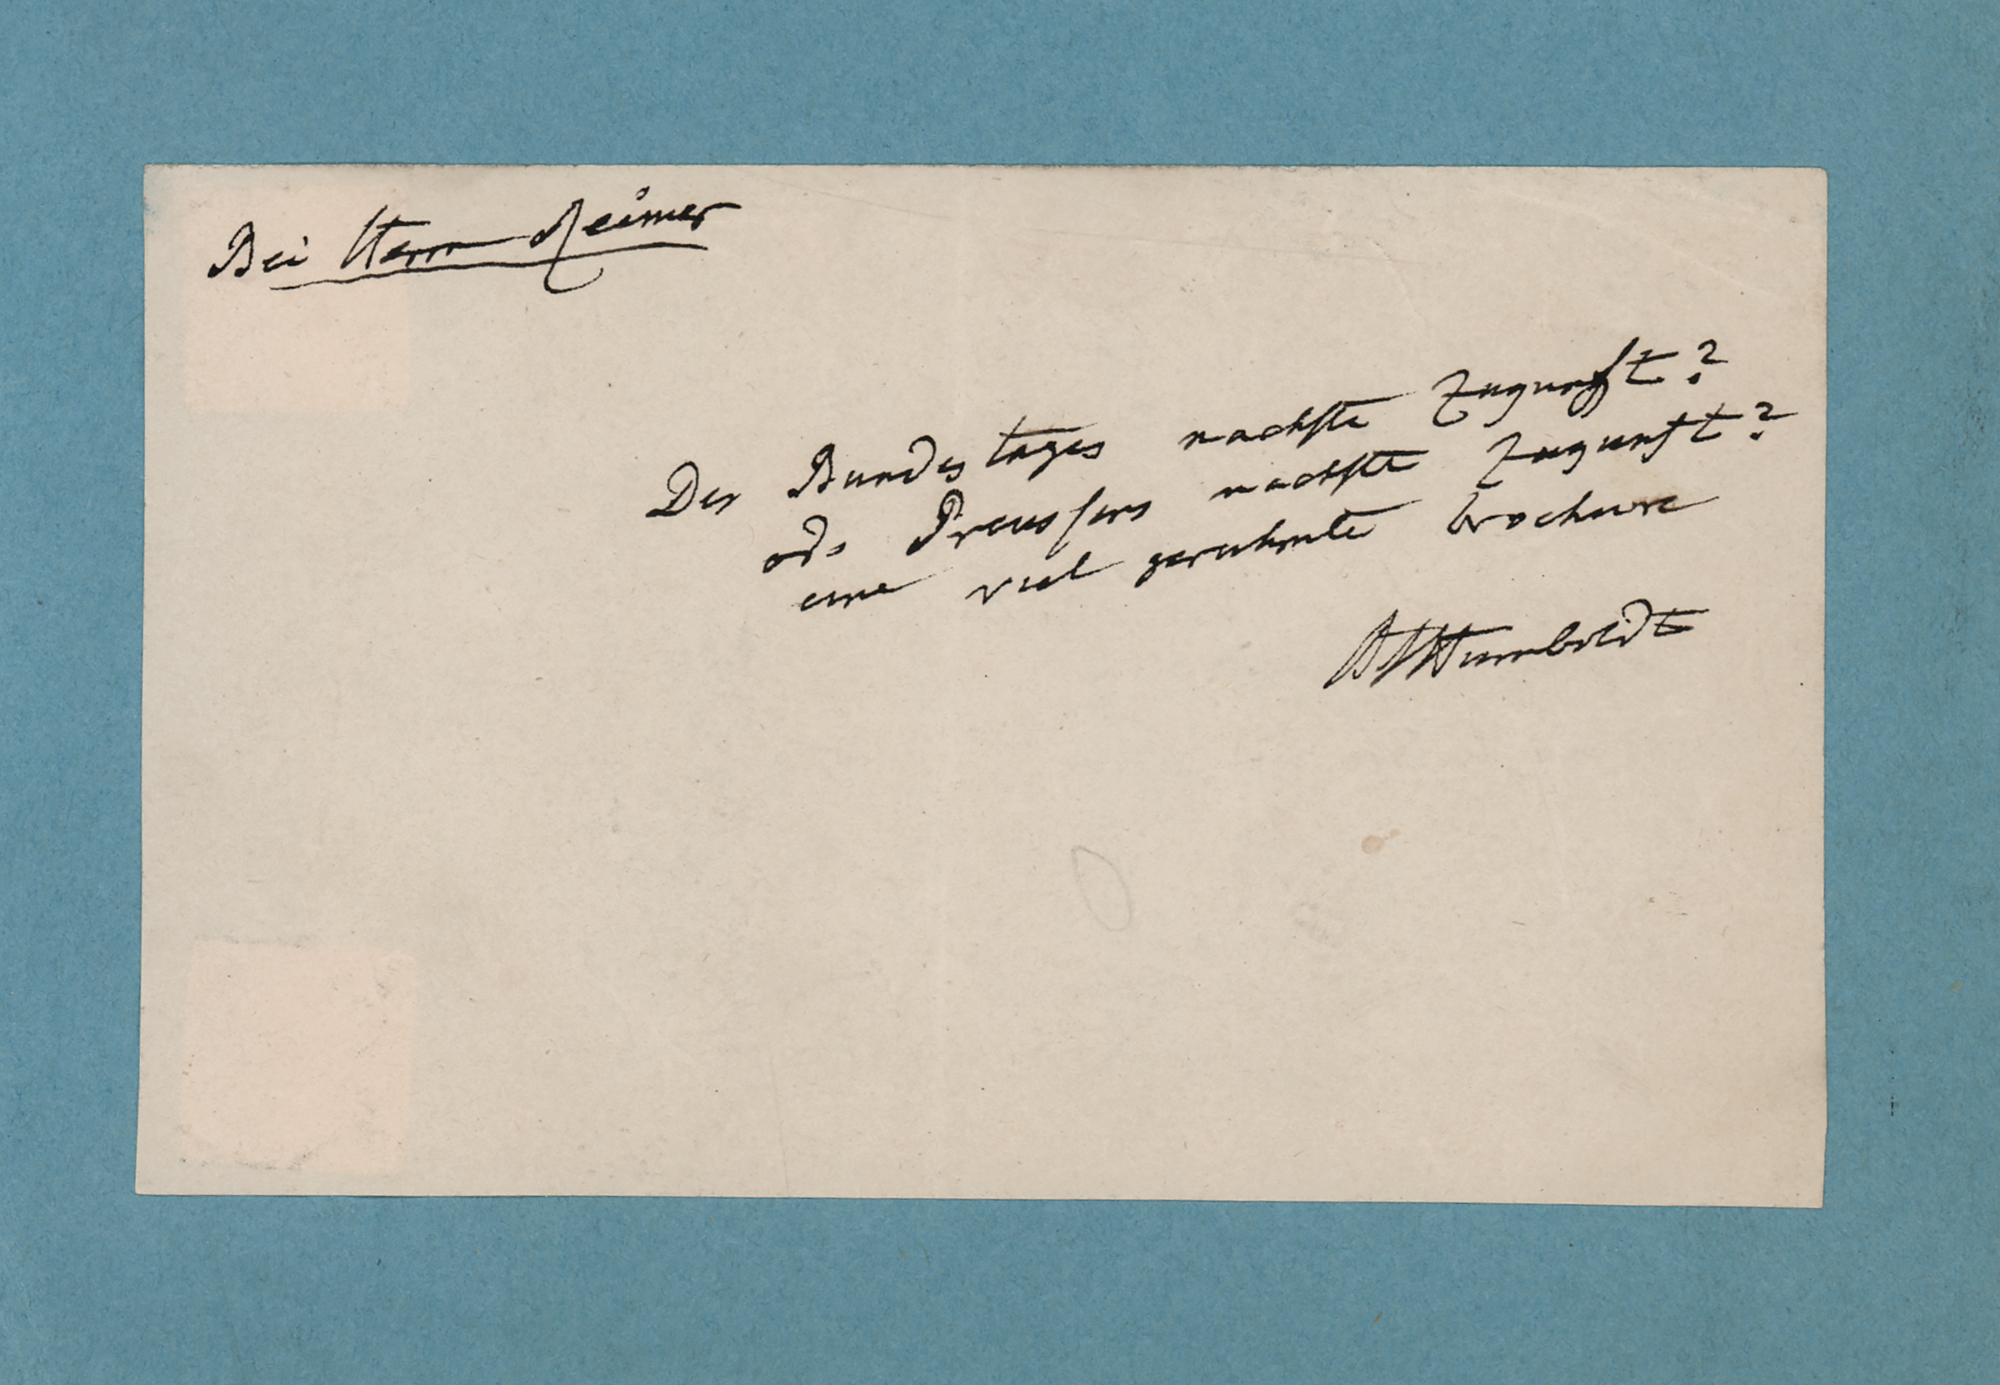 Bei Herrn Reimer
Des Bundestages nachste Zugunft?
od. Preussens nachste Zugunft?
eine viel gerühmte brochure
AvHumboldt